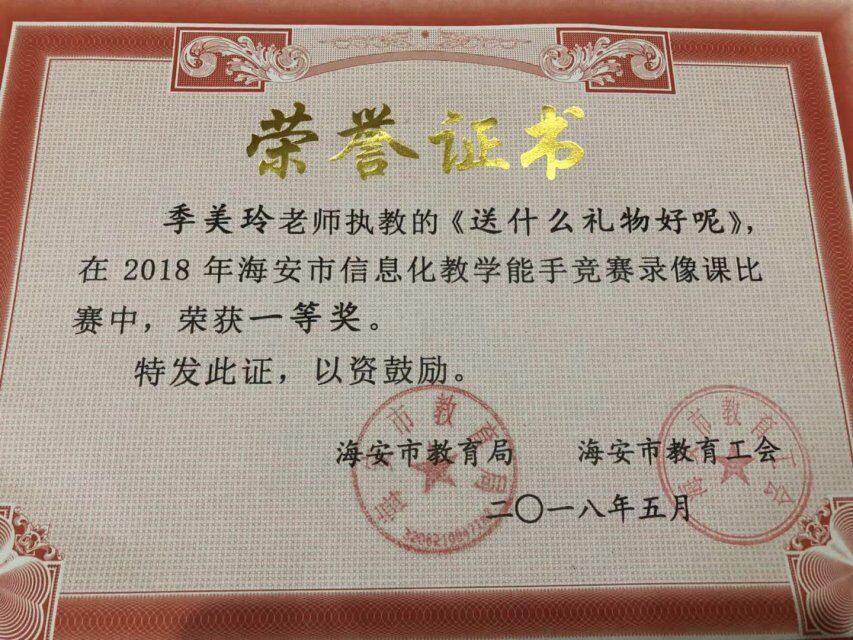 荣誉证书
季美玲老师执教的《送什么礼物好呢》,
在 2018 年海安市信息化教学能手竞赛录像课比
赛中，荣获一等奖。
特发此证，以资鼓励。
海安市教育局 海安市教育工会
二〇一八年五月
海安市教育局
海安市教育工会